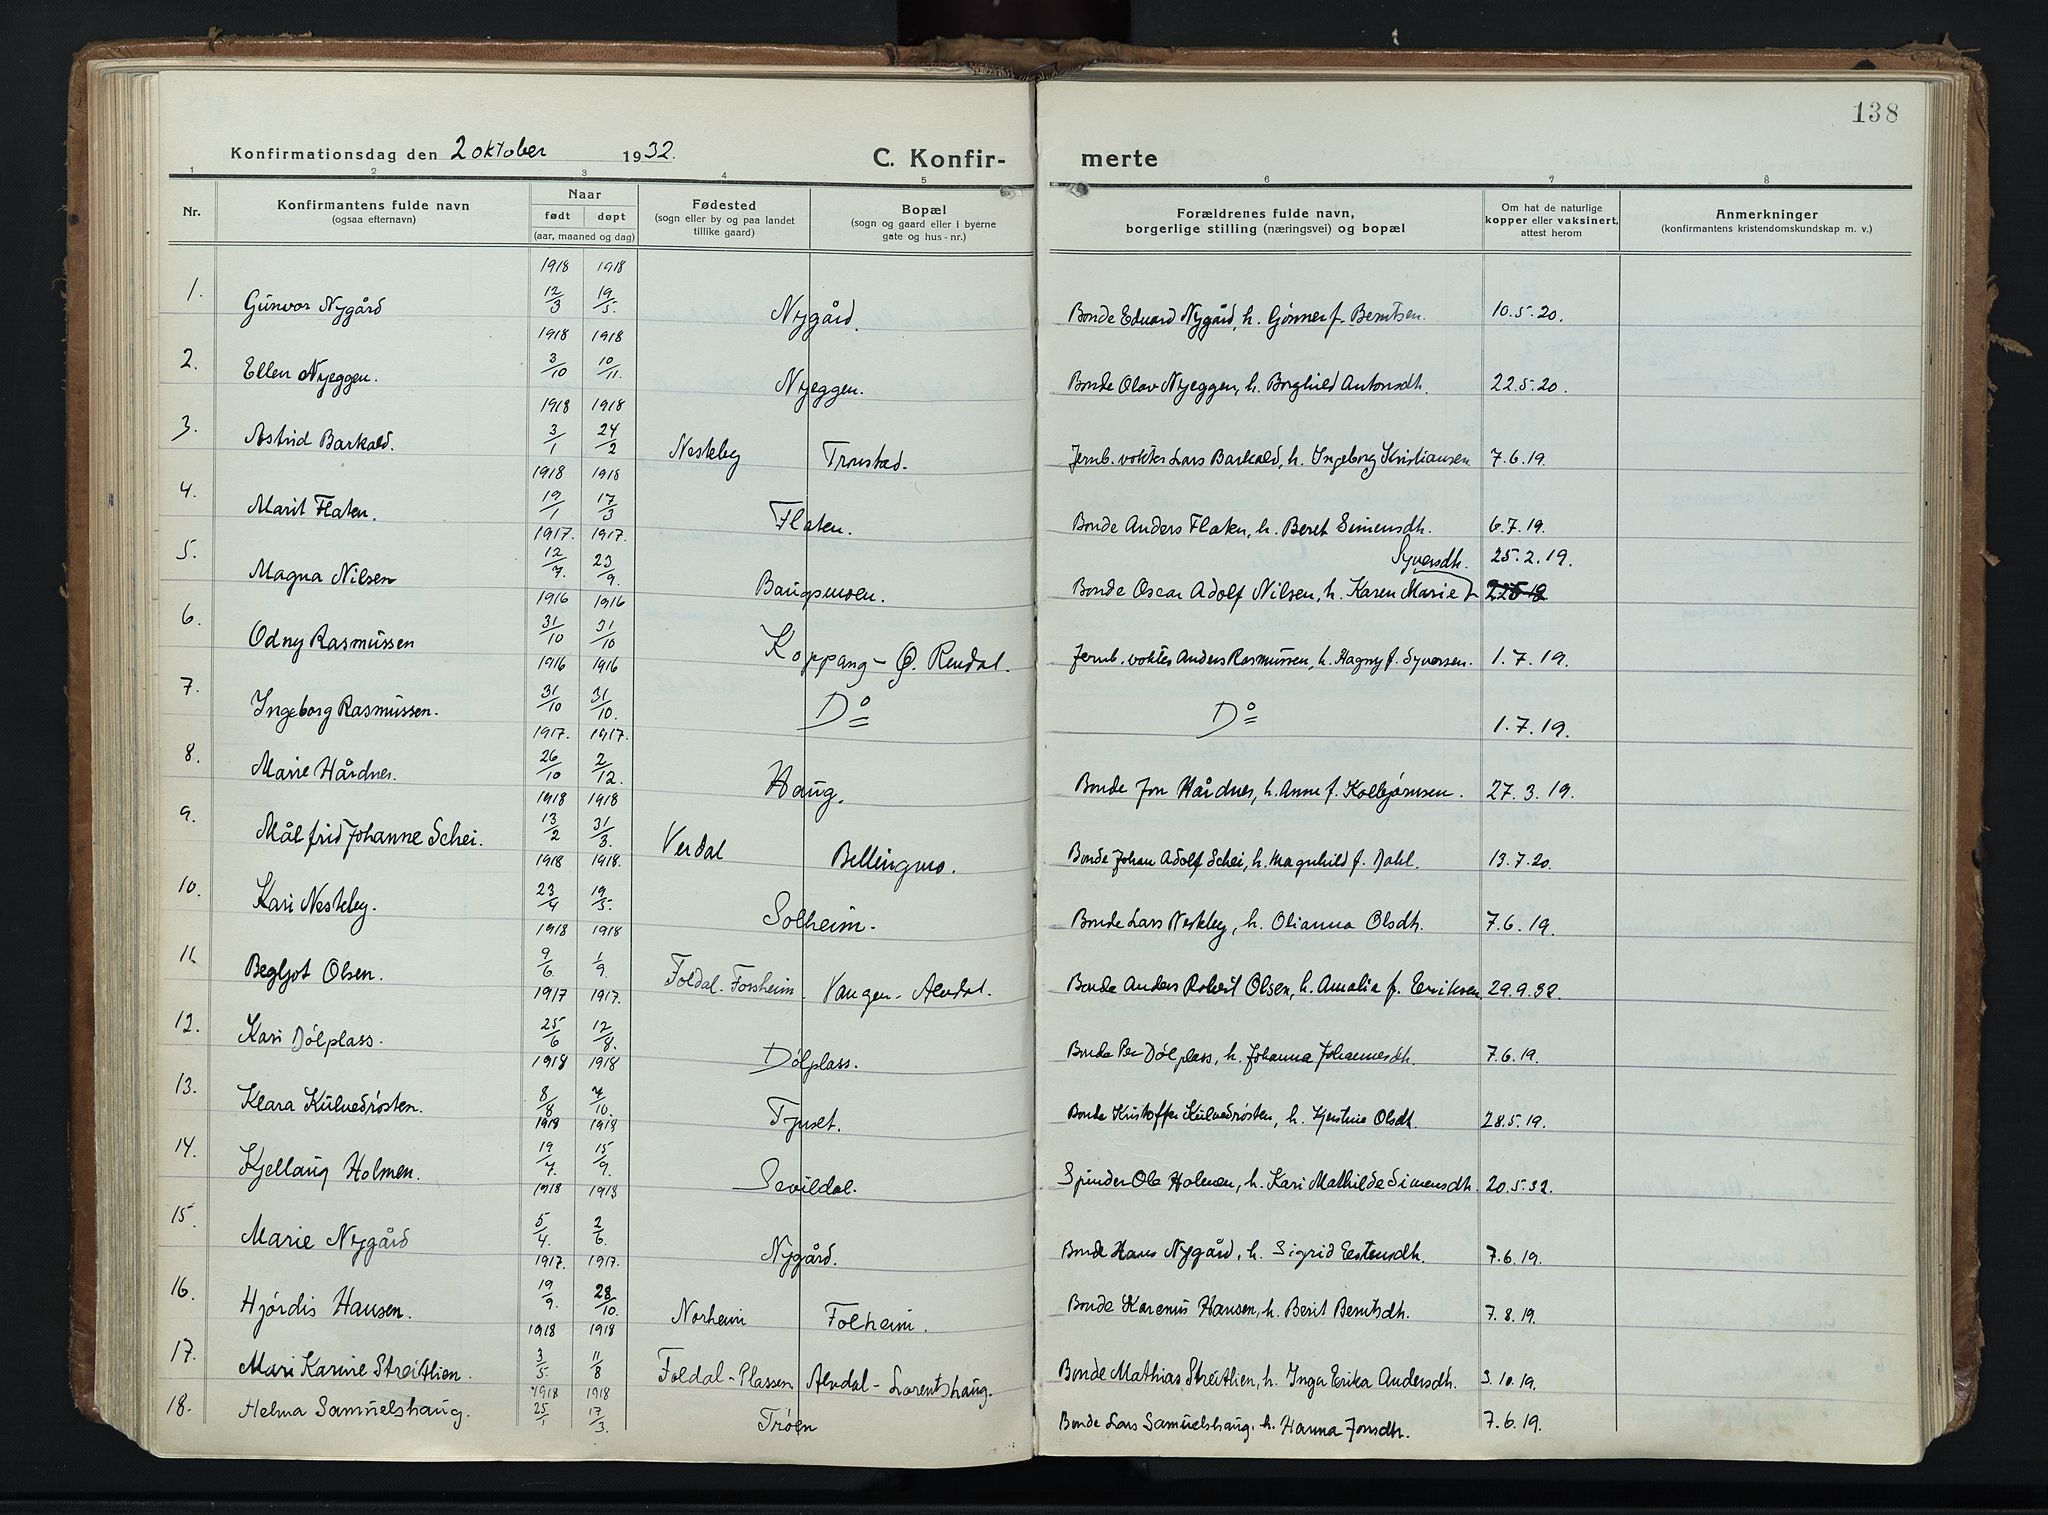 138
Konfirmationsdag den 2 oktober 1932. C. Konfir- merte
1 2 3 4 5 6 7 8
Nr. Konfirmantens fulde navn (ogsaa efternavn) Naar født døpt (aar, maaned og dag) Fødested (sogn eller by og paa landet tillike gaard) Bopæl (sogn og gaard eller i byerne gate og hus-nr.) Forældrenes fulde navn, borgerlige stilling (næringsvei) og bopæl Om hat de naturlige kopper eller vaksinert, attest herom Anmerkninger (konfirmantens kristendomskundskap m. v.)
1. Gunvor Nygård 1918 12/3 1918 19/5. Nygård. Bonde Eduard Nygård, h. Gønner f. Berntsen. 10.5.20.
2. Ellen Nyeggen. 1918 3/10 1918 10/11. Nyeggen. Bonde Olav Nyeggen, h. Borghild Antonsdh. 22.5.20.
3. Astrid Barkald. 1918 3/1 1918 24/2 Nesteby Tronstad. Jernb.vokter Lars Barkald, h. Ingeborg Kristiansen 7.6.19.
4. Marit Flaten. 1918 19/1 1918 17/3 Flaten. Bonde Anders Flaten, h. Beret Simensdh. 6.7.19.
5. Magna Nilsen 1917. 12/7. 1917. 23/9. Baugsmoen. Bonde Oscar Adolf Nilsen, h. Karen Marie Syversdh. 25.2.19.
6. Odny Rasmussen 1916 31/10 1916 31/10 Koppang - Ø. Rendal. Jernb.vokter Anders Rasmussen, h. Hagny f. Syversen. 1.7.19.
7. Ingeborg Rasmussen. 1916 31/10 1916 31/10. Do Do 1.7.19.
8. Marie Hårdnes. 1917. 26/10 1917. 2/12. Haug. Bonde Jon Hårdnes, h. Anne f. Kolbjørnsen. 27.3.19.
9. Målfrid Johanne Schei. 1918 13/2 1918 31/3. Verdal Bellingmo. Bonde Johan Adolf Schei, h. Magnhild f. Dahl. 13.7.20.
10. Kari Nesteby. 1918 23/4 1918. 19/5. Solheim. Bonde Lars Nesteby, h. Olianna Olsdh. 7.6.19.
11. Begljot Olsen. 1918 9/6 1918 1/9. Foldal-Forsheim. Vangen-Alvdal. Bonde Anders Robert Olsen, h. Amalia f. Eriksen 29.9.32.
12. Kari Dølplass. 1917 25/6 1917. 12/8. Dølplass. Bonde Per Dølplass, h. Johanna Johannesdh. 7.6.19.
13. Klara Kulvedrøsten. 1918 8/8 1918 7/10. Tjuset. Bonde Kristoffer Kulvedrøsten, h. Kjerstine Olsdh. 28.5.19.
14. Kjellaug Holmen. 1918 19/7. 1918 15/9. Sevildal. Ole Holmen, h. Kari Mathilde Simensdh. 20.5.32.
15. Marie Nygård 1918 5/4. 1918 2/6. Nygård. Bonde Hans Nygård, h. Sigrid Estensdh. 7.6.19.
16. Hjørdis Hansen. 1917. 19/9. 1917. 28/10. Norheim Folheim. Bonde Karenus Hansen, h. Berit Berntsdh. 7.8.19.
17. Mari Karine Streitlien. 1918 3/5. 1918 11/8 Foldal-Plassen Alvdal-Lorentshaug. Bonde Mathias Streitlien, h. Inga Erika Andersdh. 3.10.19.
18. Helma Samuelshaug. 1918 25/1 1918 17/3. Trøen Bonde Lars Samuelshaug, h. Hanna Jonsdh. 7.6.19.